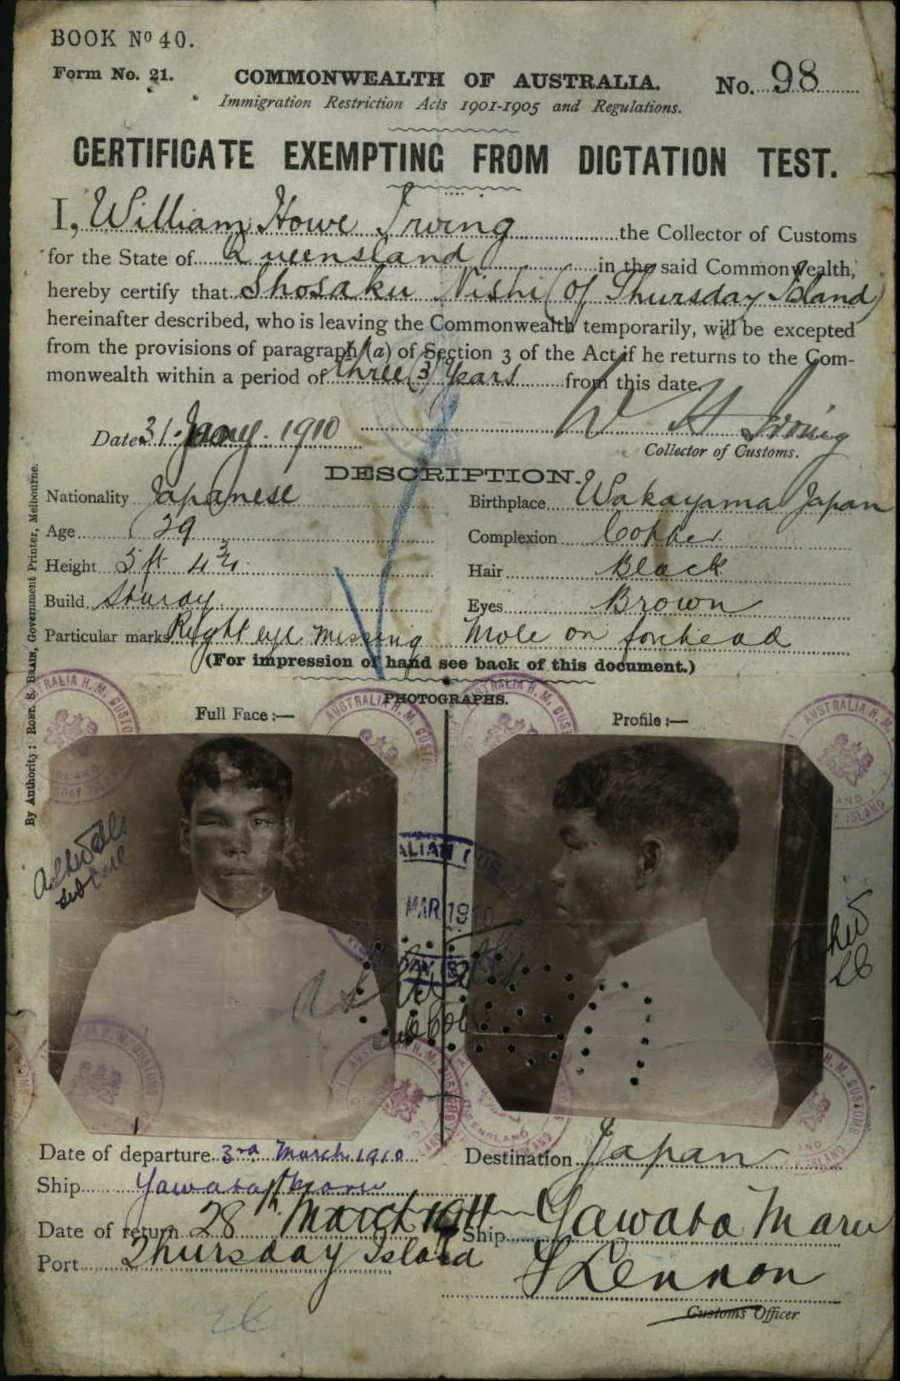 BOOK No 40.
Form No. 21.
COMMONWEALTH OF AUSTRALIA.
No. 98
Immigration Restriction Acts 1901-1905 and Regulations.
CERTIFICATE EXEMPTING FROM DICTATION TEST.
I, William Howe Irving the Collector of Customs
for the State of Queensland in the said Commonwealth,
hereby certify that Shosaku Nishi (of Thursday Island)
hereinafter described, who is leaving the Commonwealth temporarily, will be excepted
from the provisions of paragraph (a) of Section 3 of the Act if he returns to the Com-
monwealth within a period of three (3) years from this date.
W H Irving
Date 31 Jany. 1910
Collector of Customs.
DESCRIPTION.
Nationality Japanese
Birthplace Wakayama Japan
Age 29
Complexion Copper
Height 5 ft 4 3/4
Hair Black
Build Sturdy
Eyes Brown
Particular marks Right eye missing Mole on forhead
(For impression of hand see back of this document.)
PHOTOGRAPHS.
Full Face :—
Profile :—
By Authority: ROBT. S. BRAIN, Government Printer, Melbourne.
AUSTRALIA H. M. CUSTOMS
MAR 1910
Date of departure 3rd March 1910
Destination Japan
Ship Yawata Maru
Date of return 28th March 1911
Ship Yawata Maru
Port Thursday Island
S Lennon
Customs Officer